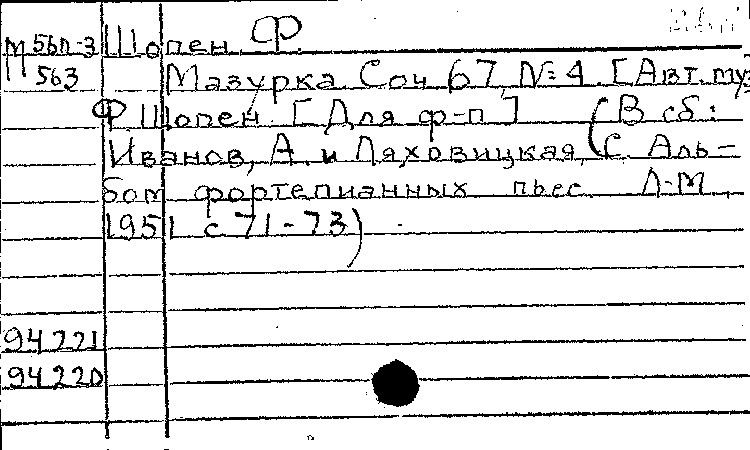 М 56п-3 Шопен Ф.
563 Мазурка Соч 67 № 4. [Авт. муз
Ф Шопен. [Для ф-п] (В сб:
Иванов, А. и Ляховицкая, С. Аль-
бом фортепианных пьес Л-М,
1951 с 71-73)
94221
94220